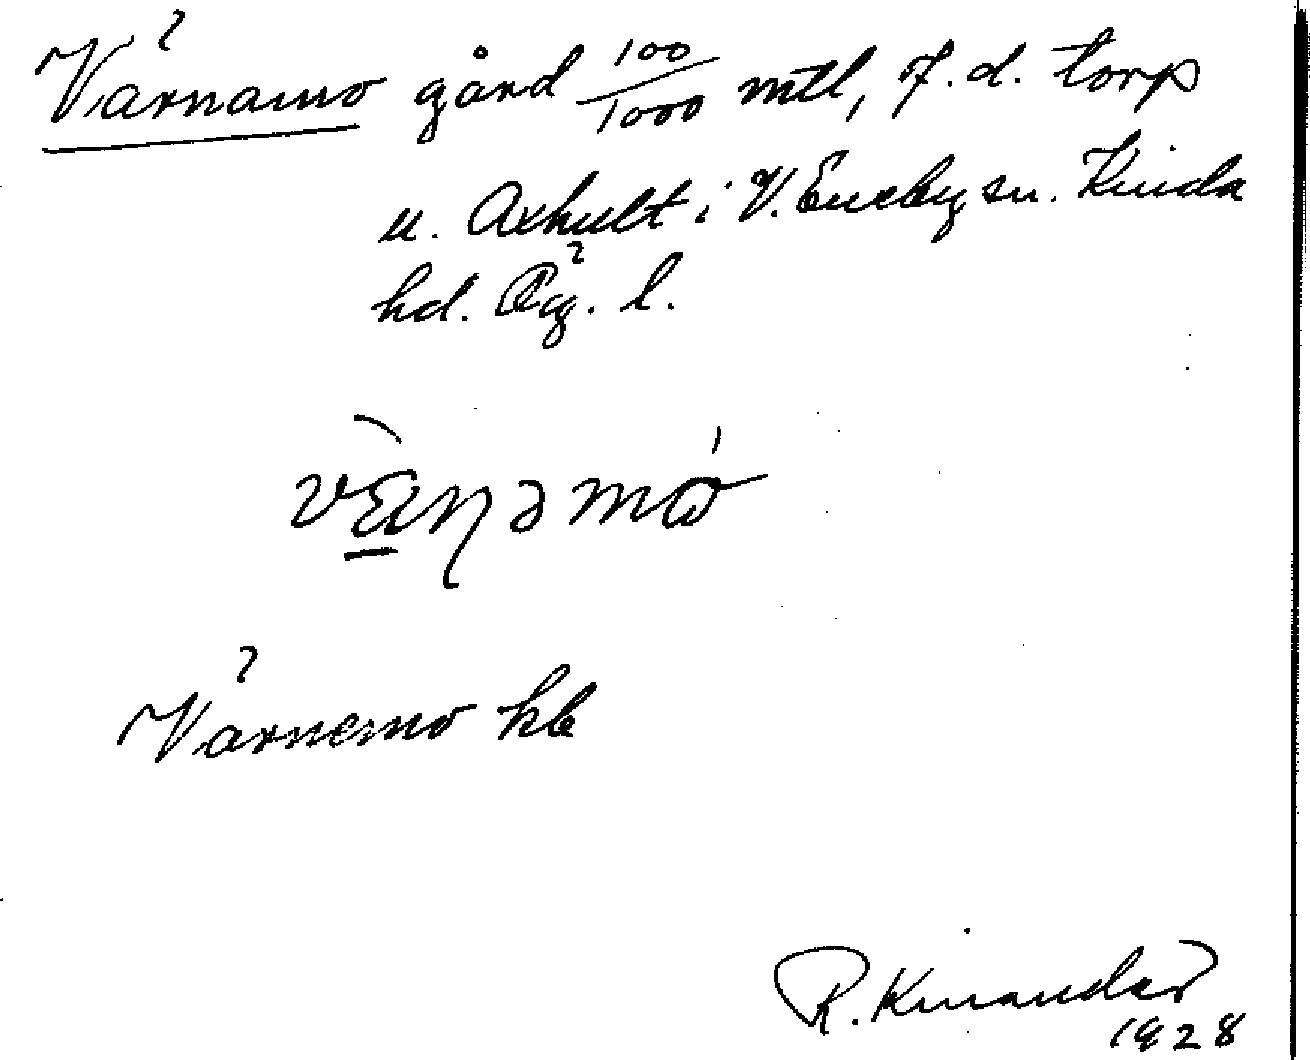 Värnamo gård 100/1000 mtl, f.d. torp
u. Axhult i V. Eneby sn. Kinda
hd. Ög. l.
Värnemo kb
R. Kinander
1928